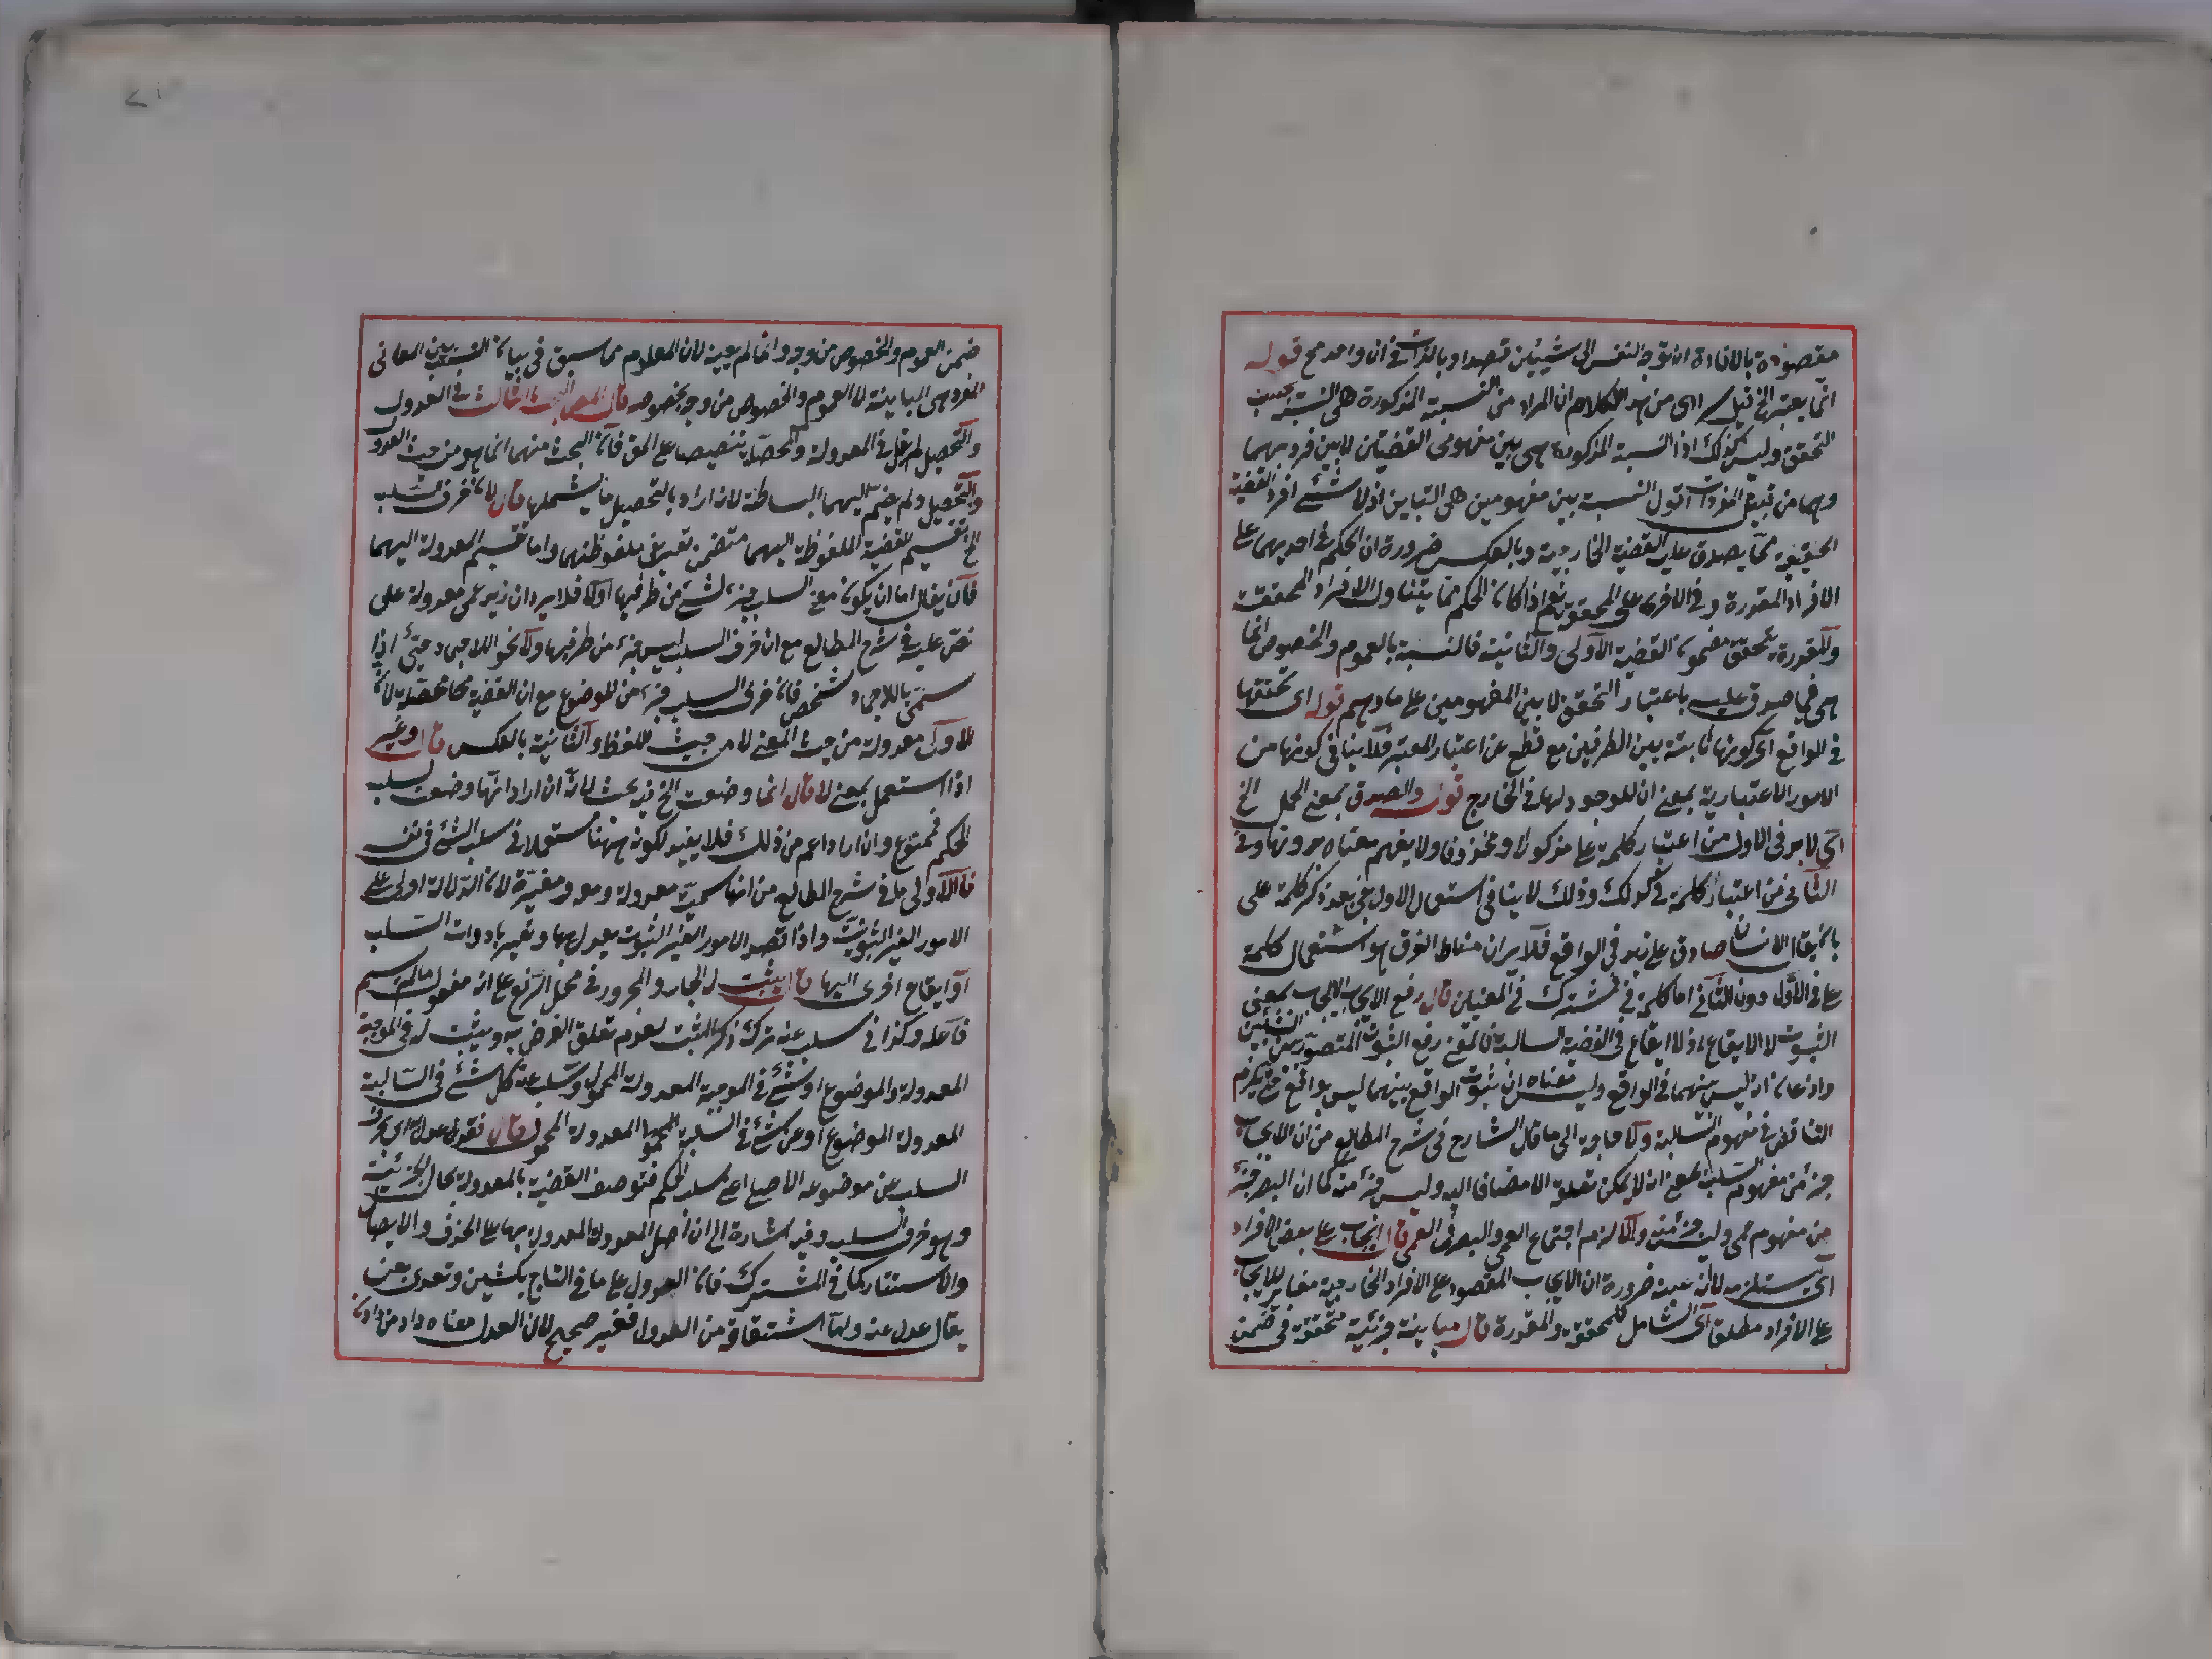 مقصودة بالافادة ان توجه النفس الى شيئين قصدا وبالذات في ان واحد مح قوله
انما يعتبر الخ قيل اى من هو الكلام ان المراد من النسبة المذكورة هى النسبة بحسب
التحقق وليس كذلك اذا النسبة المذكورة هى بين مفهومى القضيتين لا بين فرديهما
وهما من قبيل المفردات اقول النسبة بين مفهومين هى التباين اذ لا شئ افراد القضية
الحقيقية مما يصدق عليه القضية الخارجية وبالعكس ضرورة ان الحكم في احديهما على
الافراد المقدرة وفى الاخرى على المحققة نعم اذا كان الحكم مما يتناول الافراد المحققة
والمقدرة تحقق مضمون القضية الاولى والثانية فالنسبة بالعموم والخصوص انما
هى فيما صدق عليه باعتبار التحقق لا بين المفهومين على ما وهم قوله اى تحققها
في الواقع اى كونها ثابتة بين الطرفين مع قطع عن اعتبار المعتبر فلا ينافى كونها من
الامور الاعتبارية بمعنى ان لا وجود لها في الخارج قوله والصدق بمعنى الحمل الخ
اى لا بد فى الاول من اعتبار كلمة على مذكورا او محذوفا ولا يفهم معناه بدونها وفى
الثانى من اعتبار كلمة في كذلك وذلك لا ينافى استعمال الاول في بعد ذكر كلمة على
بان يقال الانسان صادق على زيد في الواقع فلا يرد ان مناط الفرق هو استعمال كلمة
على فى الاول دون الثانى اما كلمة في فمشترك في المعنيين قال رفع الايجاب الايجاب بمعنى
الثبوت لا الايقاع اذ لا ايقاع فى القضية السالبة فالمعنى رفع الثبوت المتصور بين الشيئين
واذعان انه ليس بينهما في الواقع وليس معناه ان ثبوت الواقع بينهما ليس بواقع حتى يلزم
التناقض في مفهوم السالبة ولا حاجة الى ما قال الشارح فى شرح المطالع من ان الايجاب
جزء من مفهوم السلب بمعنى انه لا يمكن تعقله الا مضافا اليه وليس جزء منه كما ان البصر جزء
من مفهوم عمى وليس جزء منه والا لزم اجتماع العمى والبصر فى العمى قال ايجاب على بعض الافراد
اى يستلزمه لا انه عينه ضرورة ان الايجاب المقصود على الافراد الخارجية مغاير للايجاب
على الافراد مطلقا اى الشامل للمحققة والمقدرة قال مباينة جزئية متحققة في ضمن
ضمن العموم والخصوص من وجه وانما لم يبينه لان المعلوم مما سبق فى بيان النسبة بين المعانى
المفرد هى المباينة لا العموم والخصوص من وجه بخصوصه قال المص البحث الثالث في العدول
والتحصيل لم يقل في المعدولة والمحصلة تنصيصا على المق فان البحث منهما انما هو من حيث العدول
والتحصيل ولم يضم اليهما البساطة لانه اراد بالتحصيل ما يشملها قال لان حرف السلب
الخ تقسيم للقضية الملفوظة اليهما متضمن تعريف ملفوظتهما واما تقسيم المعدولة اليهما
فان يقال اما ان يكون معنى السلب جزء لشئ من طرفيها او لا فلا يرد ان زيد عمى معدولة على
نص عليه في شرح المطالع مع ان حرف السلب ليس جزء من طرفيها ولا نحو اللاجى وحيئ اذا
سمى باللاجى شخص فان حرف السلب جزء من الموضوع مع ان القضية محصلة لان
الاول معدولة من حيث المعنى لا من حيث اللفظ والثانية بالعكس قال وغير
اذا استعمل بمعنى لا قال انما وضعت الخ فيه بحث لانه ان اراد انها وضعت لسلب
الحكم فممنوع وان اراد اعم من ذلك فلا يفيد لكونه ههنا مستعملا في سلب الشئ فى نفسه
فالاولى ما في شرح المطالع من انها سميت معدولة ومغيرة لان الدلالة اولى على
الامور الغير الثبوتية واذا قصد الامور الغير الثبوت يعدل بها وتغير بادوات السلب
او ايقاع اخرى اليها قال يثبت له الجار والمجرور في محل الرفع على انه مفعول ما لم يسم
فاعله وكذا فى سلب عنه ترك ذكر المثبت لعدم تعلق الغرض به ويثبت له فى الموجبة
المعدولة والموضوع او شئ في الموجبة المعدولة المحمول وسلب عنه كل شئ فى السالبة
المعدولة الموضوع او عن شئ في السالبة المعدولة المحمول قال فقد عدل اى حرف
السلب عن موضوعه الاصلى اعنى سلب الحكم فتوصف القضية بالمعدولة بحال الجزئية
وهو حرف السلب وفيه اشارة الى ان اصل المعدولة المعدولة بها على الحذف والايصال
والاستتار كما في المشترك فان العدول على ما في التاج بكشين وتعديته بعن
يقال عدل عنه واما اشتقاقه من العدول فغير صحيح لان العدل معناه داد من دادن